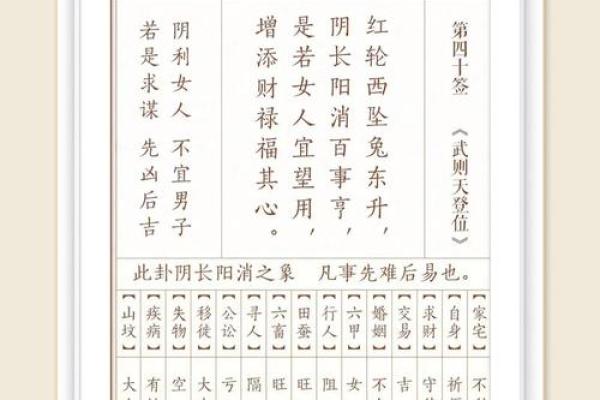 第四十签 《武则天登位》
红轮西坠兔东升,
阴长阳消百事亨,
是若女人宜望用,
增添财禄福其心。
阴利女人 不宜男子
若是求谋 先凶后吉
此卦阴长阳消之象 凡事先难后易也。
【家宅】不
【自身】祈
【求财】守
【交易】吉
【婚姻】不
【六甲】女
【行人】阻
【田蚕】旺
【六畜】旺
【寻人】隔
【公讼】亏
【移徙】大
【失物】空
【疾病】有
【山坟】大